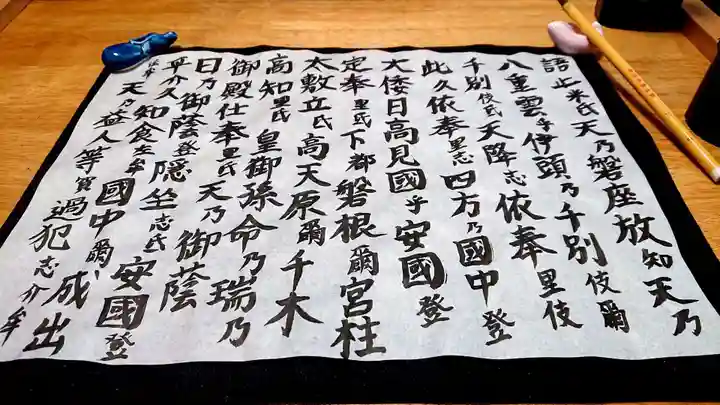 語止米氐天乃磐座放知天乃
八重雲乎伊頭乃千別伎爾
千別伎氐天降志依奉里伎
此久依奉里志四方乃國中登
大倭日高見國乎安國登
定奉里氐下都磐根爾宮柱
太敷立氐高天原爾千木
高知里氐皇御孫命乃瑞乃
御殿仕奉里氐天乃御蔭
日乃御蔭登隠坐志氐安國登
平介久知食左牟國中爾成出
牟天乃益人等賀過犯志介牟